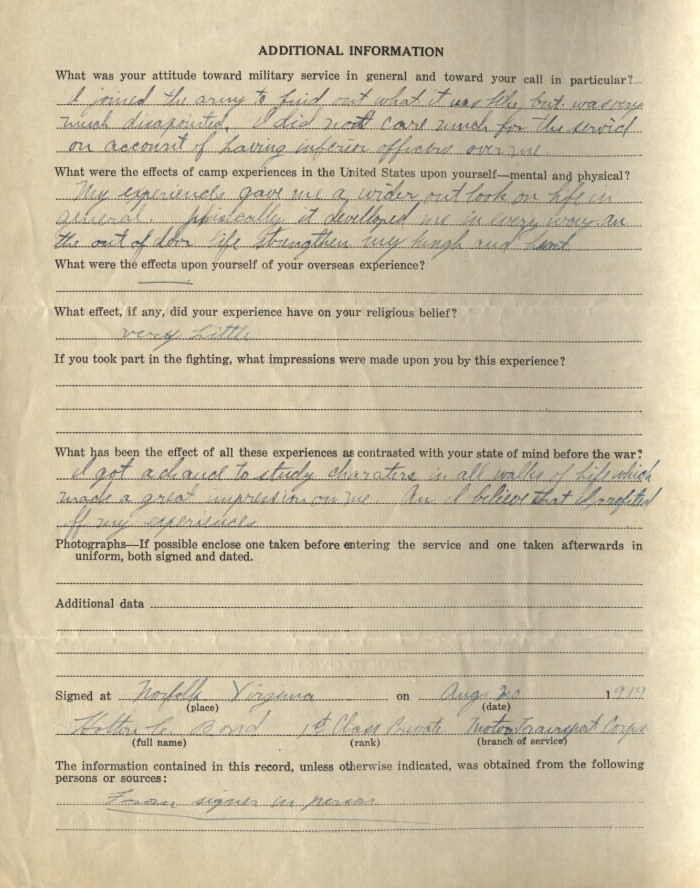 ADDITIONAL INFORMATION
What was your attitude toward military service in general and toward your call in particular?
I joined the army to find out what it was like, but was very
much disapointed. I did not care much for the service
on account of having inferior officers over me
What were the effects of camp experiences in the United States upon yourself—mental and physical?
My experiences gave me a wider out look on life in
general. phisically it developed me in every way. an
the out of door life strengthen my lungh and heart
What were the effects upon yourself of your overseas experience?
What effect, if any, did your experience have on your religious belief?
very Little
If you took part in the fighting, what impressions were made upon you by this experience?
What has been the effect of all these experiences as contrasted with your state of mind before the war?
I got a chance to study charaters in all walks of Life which
made a great impression on me. An I believe that I profited
off my experiences
Photographs—If possible enclose one taken before entering the service and one taken afterwards in
uniform, both signed and dated.
Additional data
Signed at Norfolk Virginia on Aug. 20 1919
(place) (date)
C. Bond 1st Class Private Motor Transport Corps
(full name) (rank) (branch of service)
The information contained in this record, unless otherwise indicated, was obtained from the following
persons or sources:
From signer in person